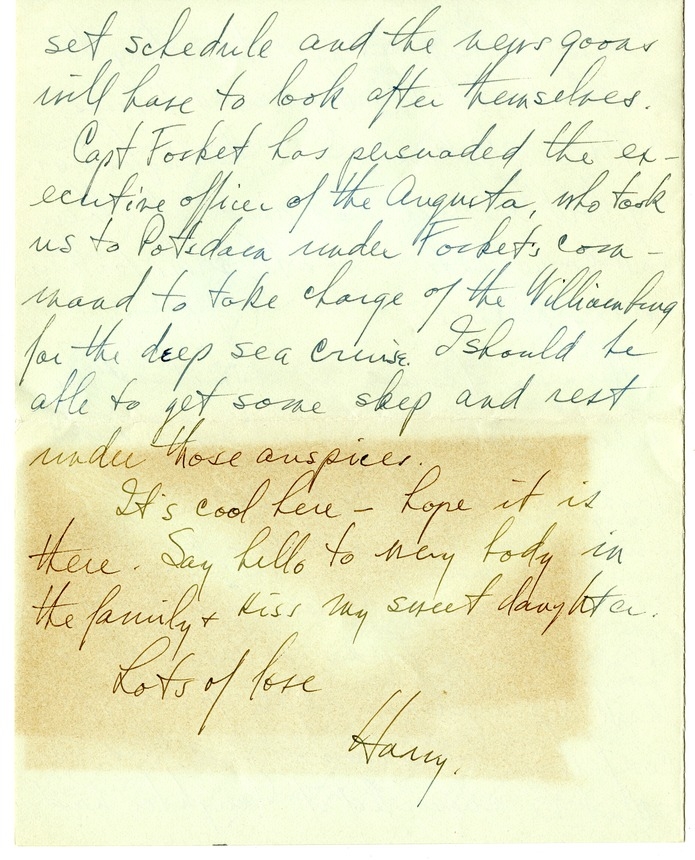 set schedule and the news goons
will have to look after themselves.
Capt Fosket has persuaded the ex-
ecutive officer of the Augusta, who took
us to Potsdam under Foskets com-
mand to take charge of the Williamsburg
for the deep sea cruise. I should be
able to get some sleep and rest
under those auspices.
It's cool here - hope it is
there. Say hello to every body in
the family & kiss my sweet daughter.
Lots of love
Harry.